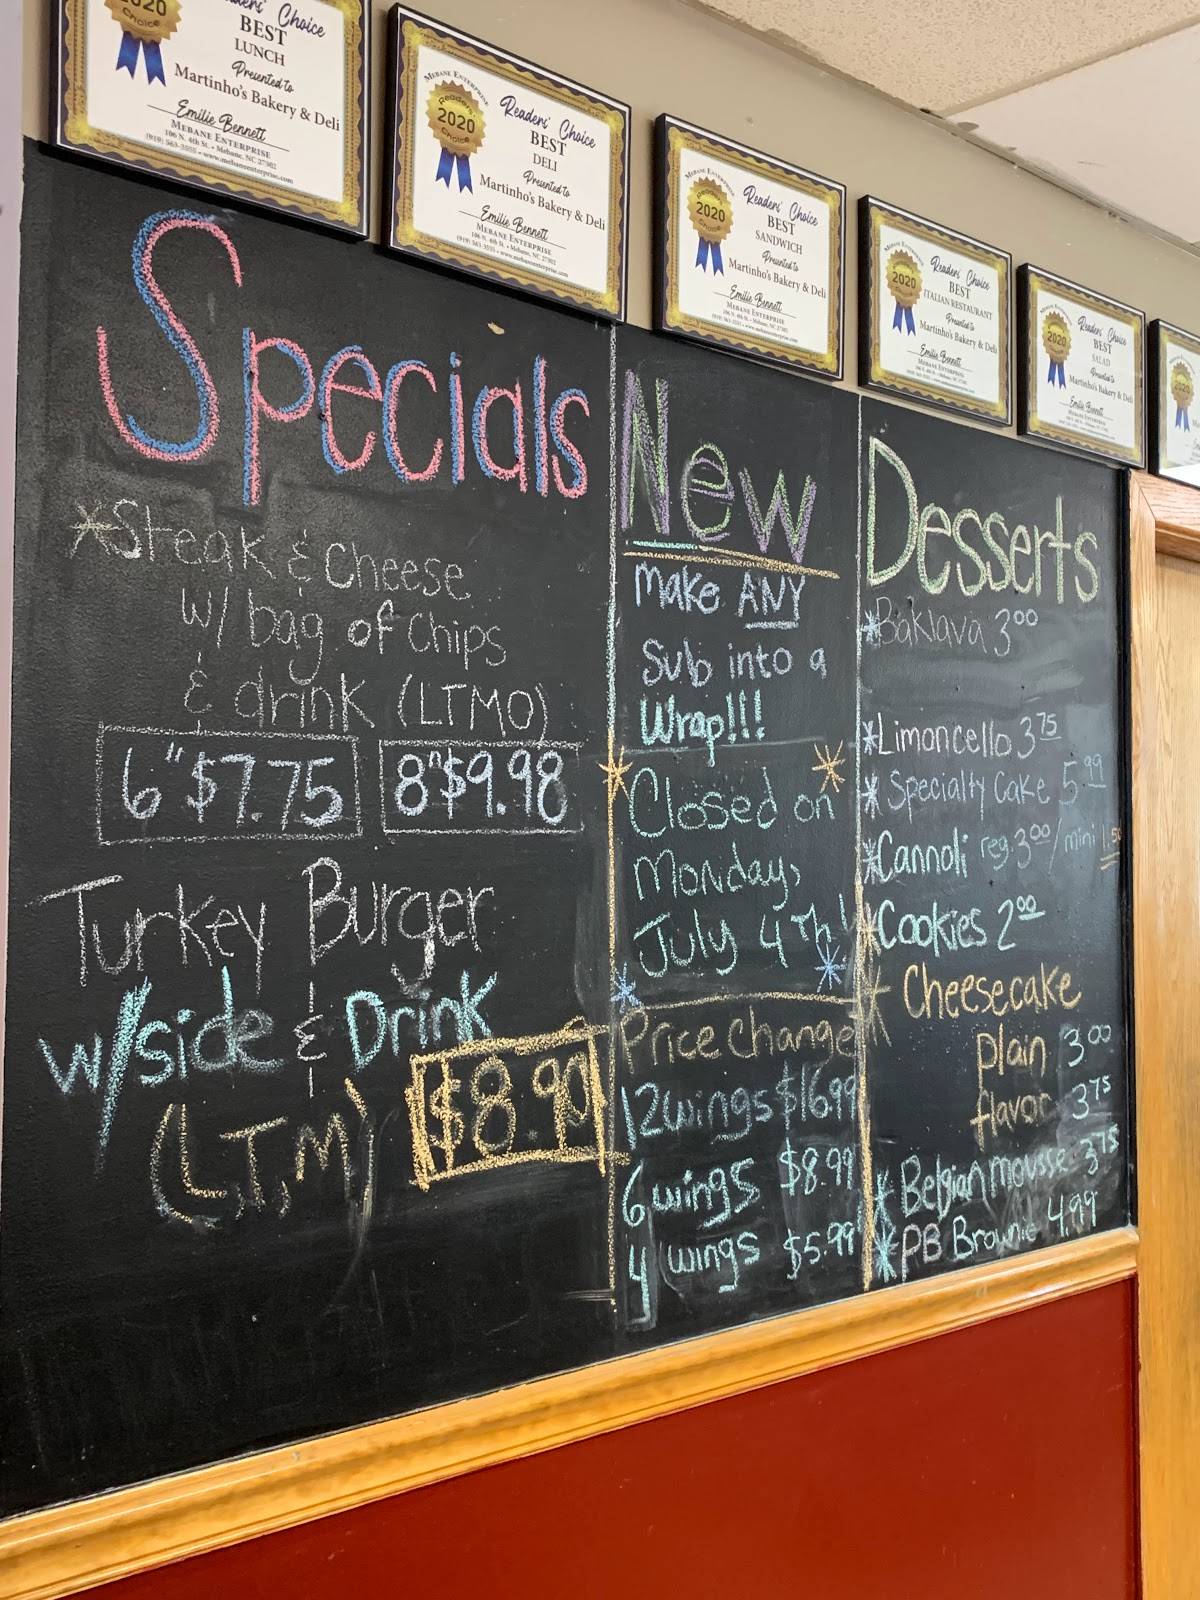 2020
Choice
Readers' Choice
BEST
LUNCH
Presented to
Martinho's Bakery & Deli
Emilie Bennett
MEBANE ENTERPRISE
106 N. 4th St. • Mebane, NC 27302
(919) 563-3555 • www.mebaneenterprise.com
MEBANE ENTERPRISE
Readers'
2020
Choice
Readers' Choice
BEST
DELI
Presented to
Martinho's Bakery & Deli
Emilie Bennett
MEBANE ENTERPRISE
106 N. 4th St. • Mebane, NC 27302
(919) 563-3555 • www.mebaneenterprise.com
MEBANE ENTERPRISE
2020
Choice
Readers' Choice
BEST
SANDWICH
Presented to
Martinho's Bakery & Deli
Emilie Bennett
MEBANE ENTERPRISE
106 N. 4th St. • Mebane, NC 27302
2020
Readers' Choice
BEST
ITALIAN RESTAURANT
Presented to
Martinho's Bakery & Deli
Emilie Bennett
MEBANE ENTERPRISE
2020
Readers' Choice
BEST
SALAD
Presented to
Martinho's Bakery & Deli
Emilie Bennett
MEBANE ENTERPRISE
2020
Specials
*Steak & Cheese
w/ bag of Chips
& drink (LTMO)
6" $7.75 8" $9.98
Turkey Burger
w/side & Drink
(LT,M) $8.90
New
Make ANY
Sub into a
Wrap!!!
Closed on
Monday,
July 4Th!
Price Change
12 wings $16.99
6 wings $8.99
4 wings $5.99
Desserts
*Baklava 3.00
*Limoncello 3.75
*Specialty Cake 5.99
*Cannoli reg. 3.00 / mini 1.50
*Cookies 2.00
*Cheesecake
plain 3.00
flavor 3.75
*Belgian mousse 3.75
*PB Brownie 4.99